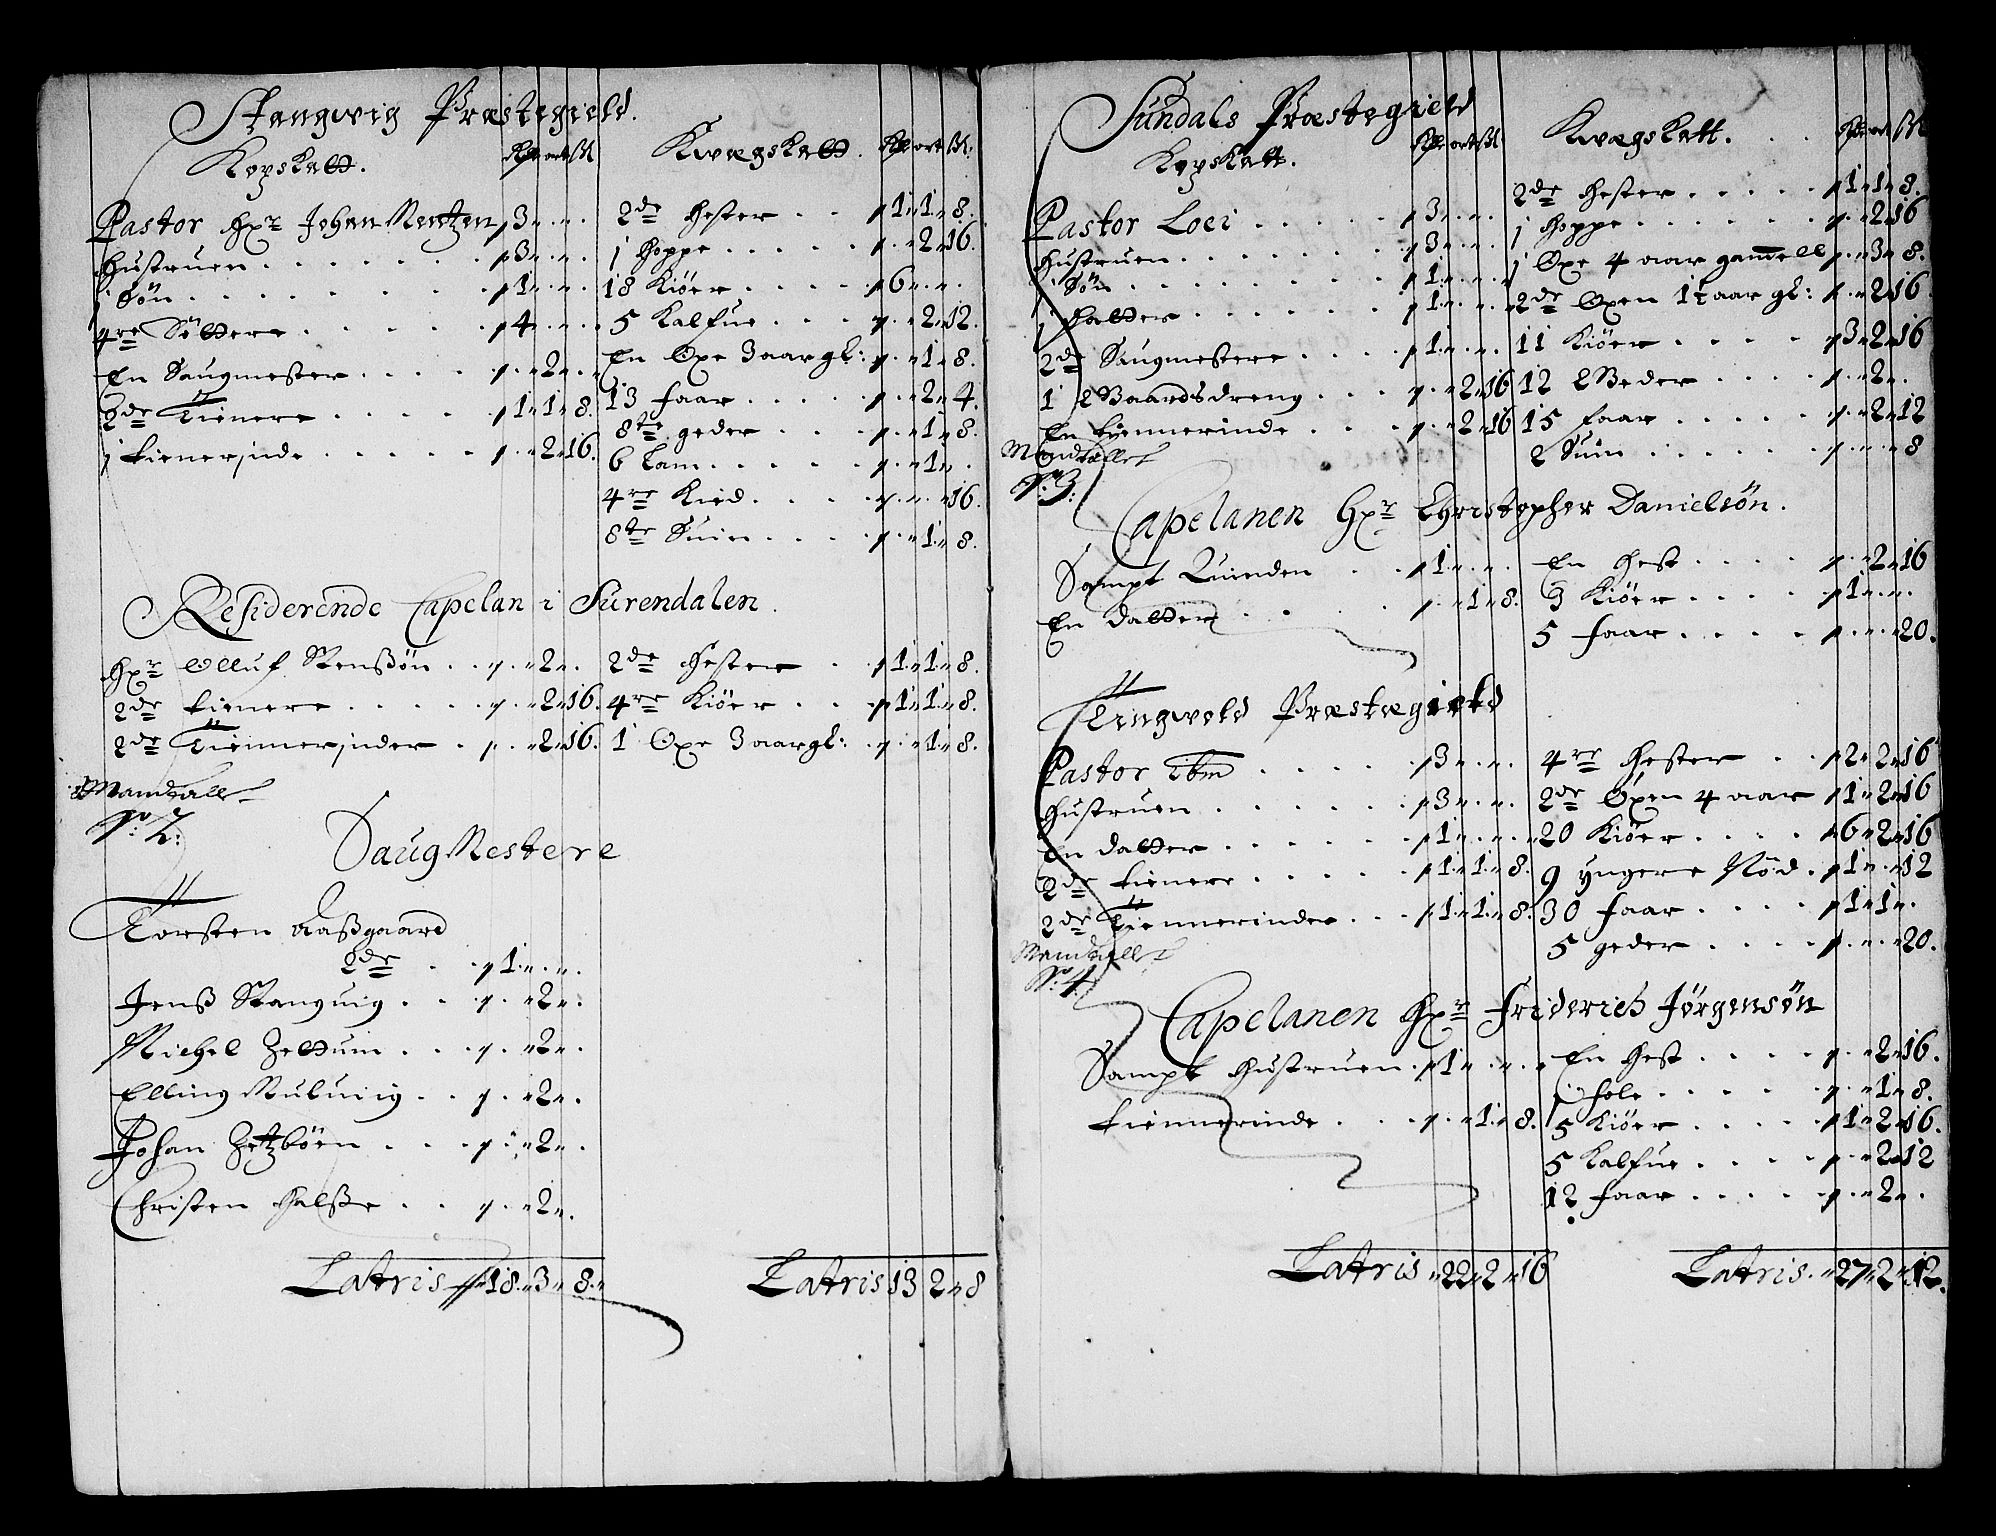 Stangwig Præstegield.
Kopskatt. Rdr ort ß
Pastor Hr Johan Mentzen p 3 " "
Hustruen . . . p 3 " "
1 Søn . . . p 1 " "
4re Döttere . . . p 4 " "
En Saugmester . . . p " 2 "
2de Tienere . . . p 1 " 1 " 8
1 tienerinde . . . p " 2 " 16
Kvægskatt. Rdr ort ß
2de Hester . . p 1 " 1 " 8
1 Hoppe . . . p " 2 " 16
18 Kiöer . . . p 6 " "
5 Kalfue . . . p " 2 " 12
En Oxe 3 aar gl: p " 1 " 8
13 faar . . . p " 2 " 4
8te geder . . . p " 1 " 8
6 Lam . . . p " 1 "
4re Kied . . . p " " 16
8te Suin . . . p " 1 " 8
Residerende Capelan i Surendalen
Hr Olluf Stenßøn . . p " 2 "
2de tienere . . . p " 2 " 16
2de Tiennerinder . p " 2 " 16
2de Hester . p 1 " 1 " 8
4re Kiöer . . p 1 " 1 " 8
1 Oxe 3 aar gl: p " 1 " 8
Mandtallet
No: 2:
Saug Mestere
Torsten Aaßgaard
2de . . p 1 " "
Jenß Stanguig . . p " 2 "
Michel Zeltuin . . . p " 2 "
Elling Muluiig . . p " 2 "
Johan Zetzböen . . . p " 2 "
Christen Halße . . p " 2 "
Latris 18 " 3 " 8 "
Latris 13 2 " 8
Sundals Præstegield
Kopskatt. Rdr ort ß
Pastor Loci . . . p 3 " "
Hustruen . . . p 3 " "
1 Søn . . . p 1 " "
1 Datter . . . p 1 " "
2de Saugmestere . . . p 1 " "
1 Gaardsdreng . . . p " 2 " 16
En tiennerinde . . . p " 2 " 16
Mandtallet
No: 3:
Kvægskatt. . . Rdr ort ß
2de Hester . . . p 1 " 1 " 8
1 Hoppe . . . p " 2 " 16
1 Oxe 4 aar gamell p " 3 " 8
2de Oxen 1½ aar gl: p " 2 " 16
11 Kiöer . . . p 3 " 2 " 16
12 Beder . . . p " 2 "
15 faar . . . p " 2 " 12
2 Suin . . . p " " 8
Capelanen Hr Christopher Danielsøn.
Sampt Quinden . . p 1 " "
En datter . . p " 1 " 8
En Hest . . . p " 2 " 16
3 Kiöer . . . p 1 " "
5 faar . . . p " " 20
Tingvold Præstegield
Pastor ibm . . . p 3 " "
Hustruen . . . p 3 " "
En datter . . . p 1 " "
2de tienere . . . p 1 " 1 " 8
2de Tiennerinder . . p 1 " 1 " 8
Mandtallet
No: 4
4re Hester . . p 2 " 2 " 16
2de Oxen 4 aar p 1 " 2 " 16
20 Kiöer . . . p 6 " 2 " 16
9 yngere Nöd . p 1 " " 12
30 faar . . . p 1 " 1 "
5 geder . . . p " " 20
Capelanen Hr Friderich Jørgensøn
Sampt Hustruen . p 1 " "
tiennerinde . . . p " 1 " 8
En Hest . . . p " 2 " 16
1 fole . . . p " 1 " 8
5 Kiöer . . . p 1 " 2 " 16
5 Kalfue . . . p " 2 " 12
12 faar . . . p " 2 "
Latris " 22 " 2 " 16
Latris. " 27 " 2 " 12.